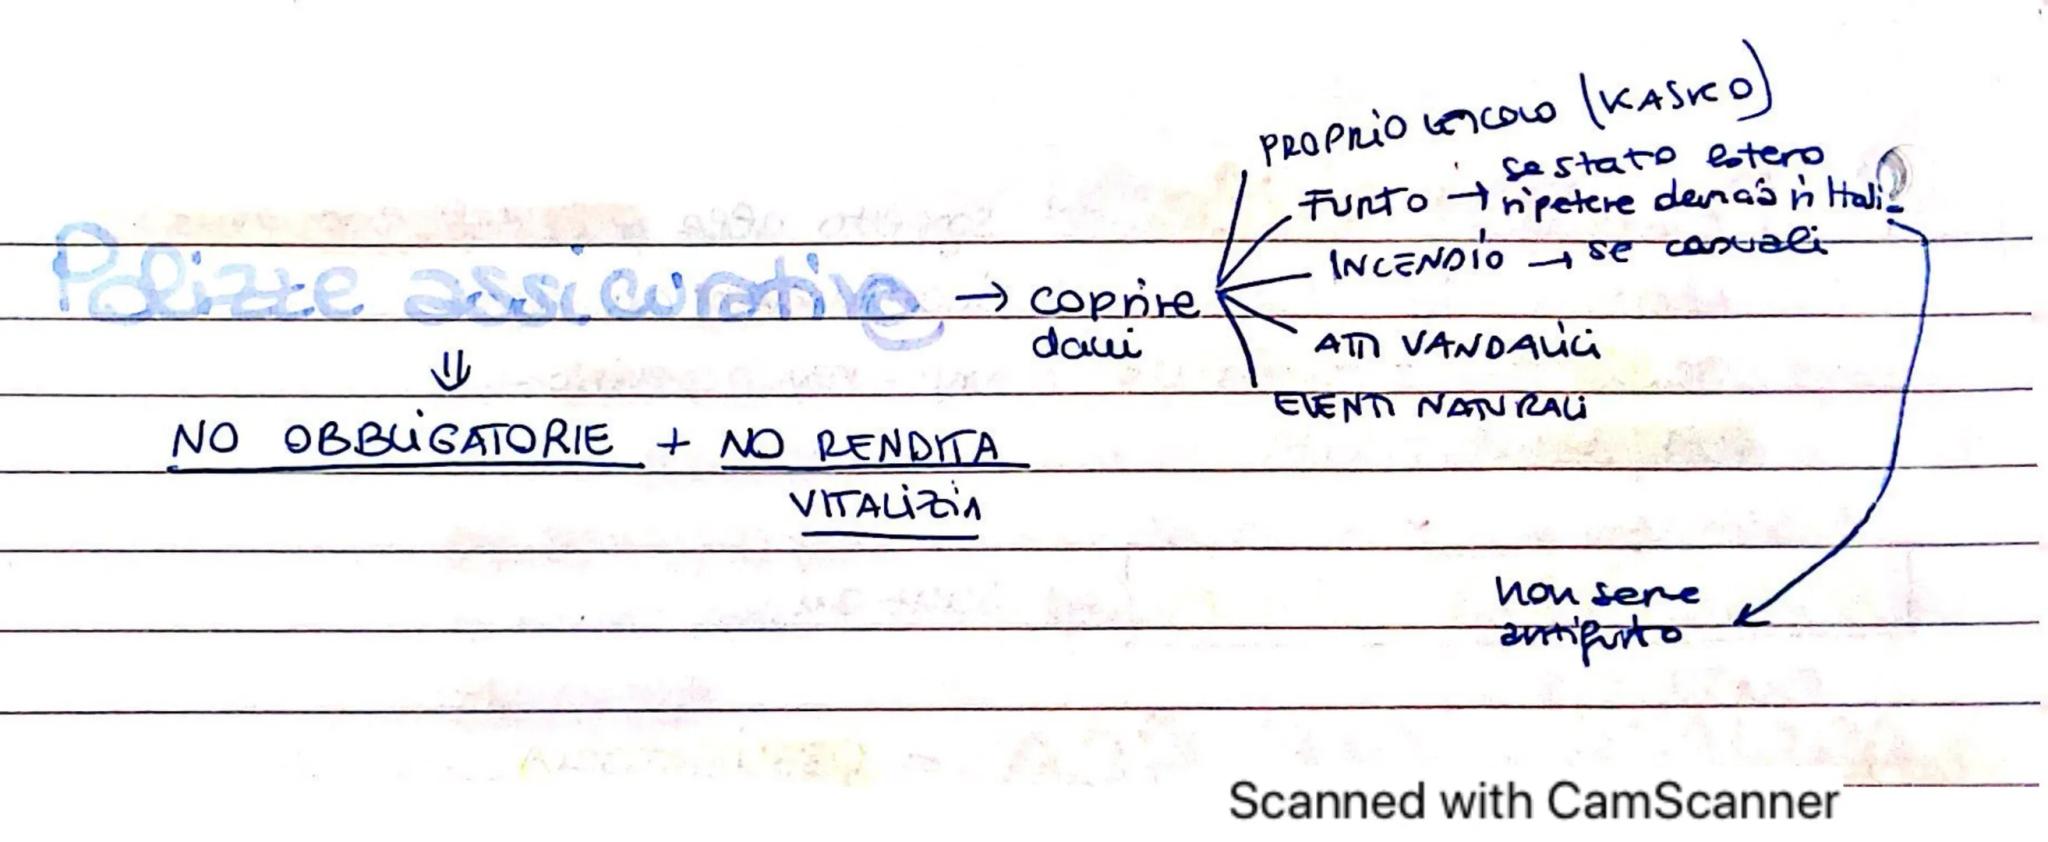 PROPRIO VEICOLO (KASKO)
se stato estero
FURTO → ripetere denuncia in Italia
INCENDIO → se casuali
Polizze assicurative → coprire
danni
ATTI VANDALICI
⇓
EVENTI NATURALI
NO OBBLIGATORIE + NO RENDITA
VITALIZIA
non serve
antifurto
Scanned with CamScanner